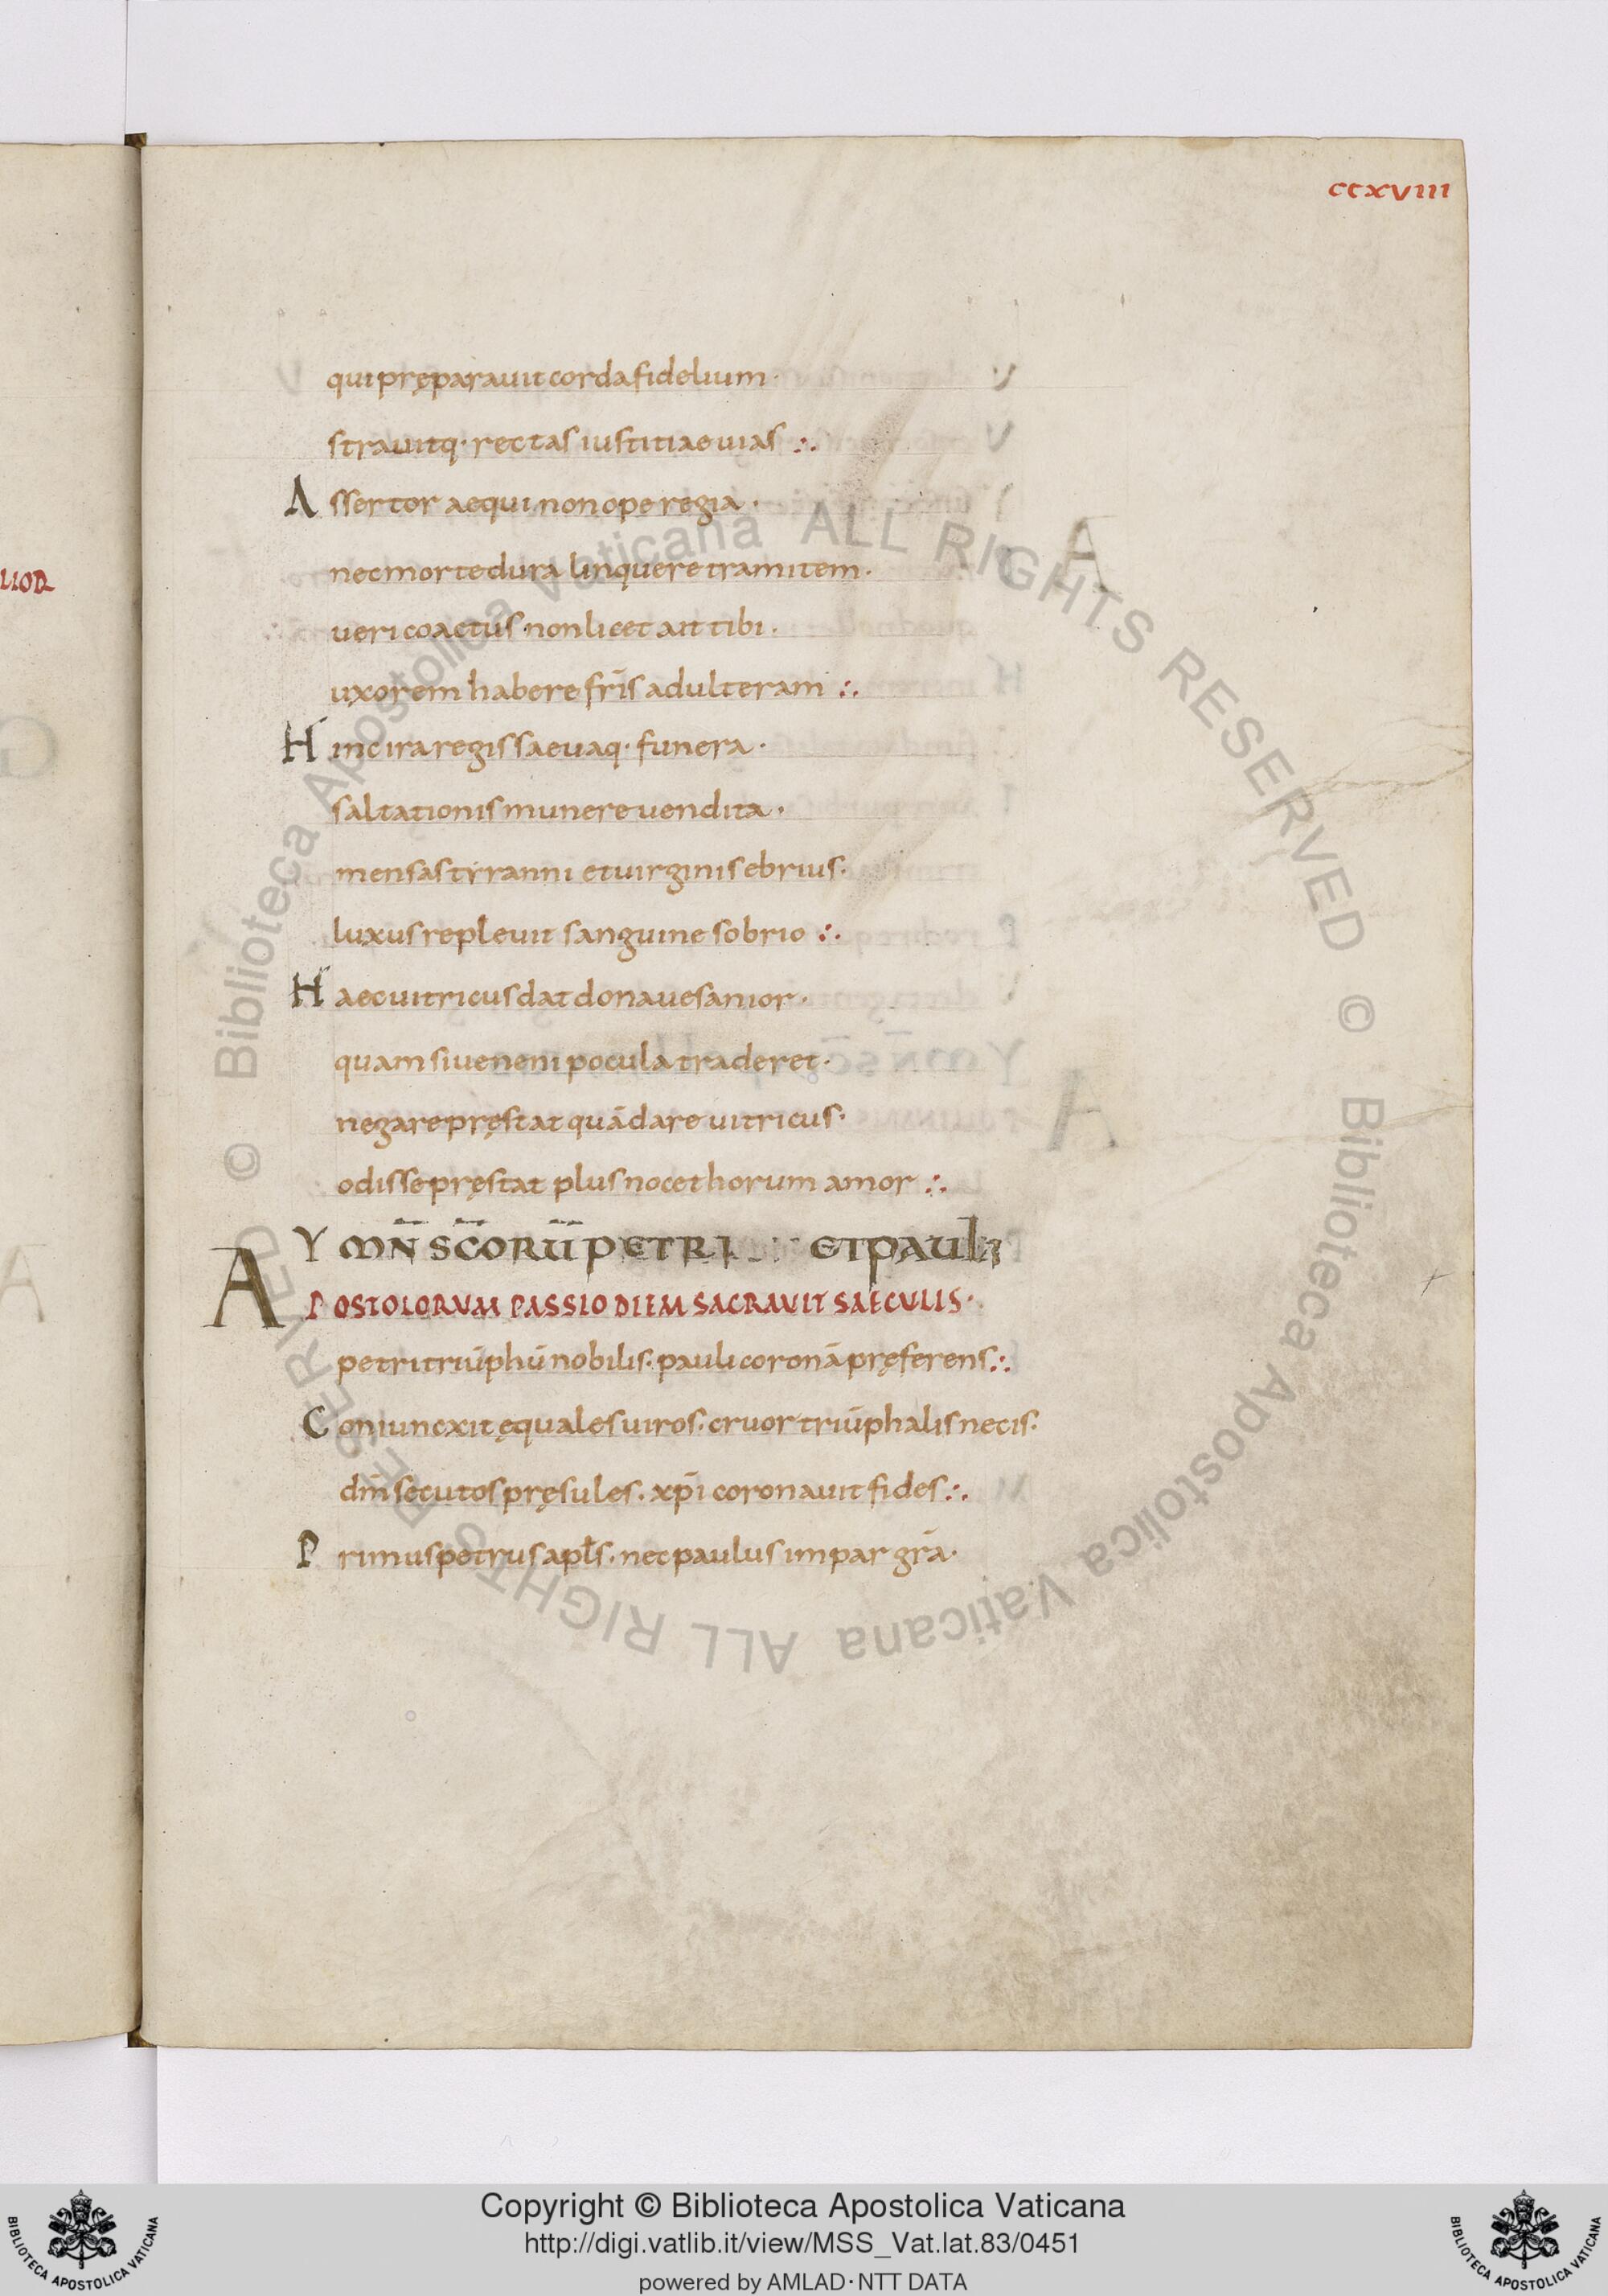 ccxviii
lior
qui pręparauit corda fidelium·
strauitq· rectas iustitiae uias ∴
Assertor aequi non ope regia·
nec morte dura linquere tramitem·
ueri coactus· non licet ait tibi·
uxorem habere fr̄is adulteram ∴
Hinc ira regis saeuaq· funera·
saltationis munere uendita·
mensas tyranni et uirginis ebrius·
luxus repleuit sanguine sobrio ∴
Haec uitricus dat dona uesanior·
quam si ueneni pocula traderet·
negare pręstat quā dare uitricus·
odisse pręstat plus nocet horum amor ∴
YMN̄ SC̄ORŪ PETRI ET PAULI
APOSTOLORVM PASSIO DIEM SACRAVIT SAECVLIS·
petri triūphū nobilis· pauli coronā pręferens ∴
Coniuncxit ęquales uiros· cruor triūphalis necis·
dn̄m secutos pręsules· xp̄i coronauit fides ∴
Primus petrus apl̄s· nec paulus impar gr̄a·
© Biblioteca Apostolica Vaticana ALL RIGHTS RESERVED © Biblioteca Apostolica Vaticana ALL RIGHTS RESERVED
Copyright © Biblioteca Apostolica Vaticana
http://digi.vatlib.it/view/MSS_Vat.lat.83/0451
powered by AMLAD·NTT DATA
BIBLIOTECA APOSTOLICA VATICANA
BIBLIOTECA APOSTOLICA VATICANA